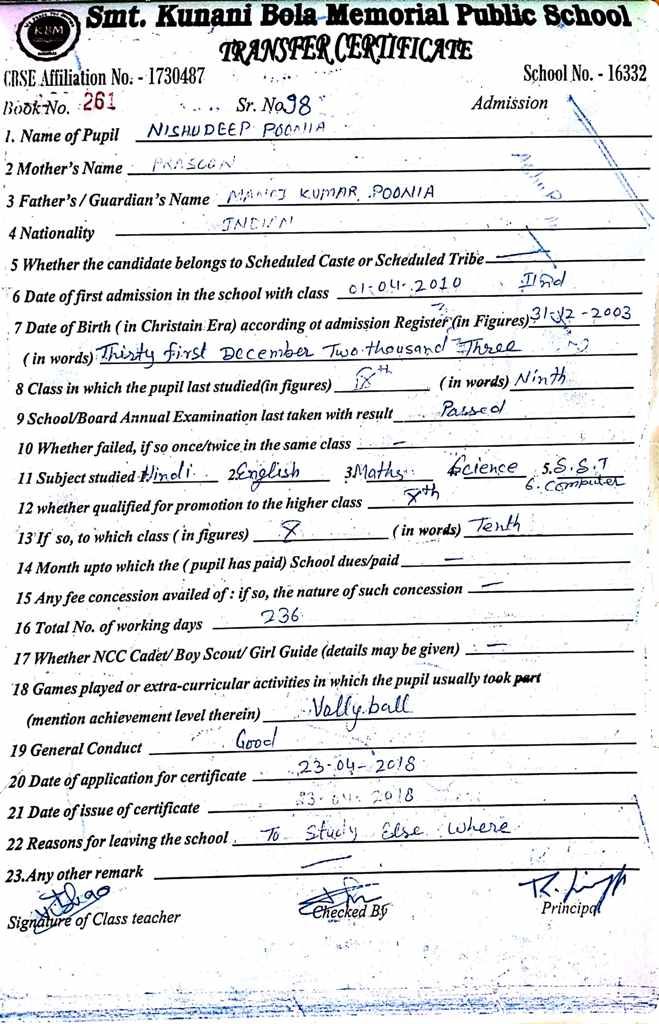 KBM
Smt. Kunani Bola Memorial Public School
TRANSFER CERTIFICATE
CBSE Affiliation No. - 1730487 School No. - 16332
Book No. 261 Sr. No. 98 Admission
1. Name of Pupil NISHUDEEP POONIA
2 Mother's Name
3 Father's / Guardian's Name MANOJ KUMAR POONIA
4 Nationality INDIAN
5 Whether the candidate belongs to Scheduled Caste or Scheduled Tribe —
6 Date of first admission in the school with class 01-04-2010 IInd
7 Date of Birth ( in Christain Era) according ot admission Register (in Figures) 31-12-2003
( in words) Thirty first December Two thousand Three
8 Class in which the pupil last studied(in figures) IXth ( in words) Ninth
9 School/Board Annual Examination last taken with result Passed
10 Whether failed, if so once/twice in the same class —
11 Subject studied 1. Hindi 2. English 3. Maths 4. Science 5. S.S.T
6. Computer
12 whether qualified for promotion to the higher class Xth
13 If so, to which class ( in figures) X ( in words) Tenth
14 Month upto which the ( pupil has paid) School dues/paid —
15 Any fee concession availed of : if so, the nature of such concession —
16 Total No. of working days 236
17 Whether NCC Cadet/ Boy Scout/ Girl Guide (details may be given) —
18 Games played or extra-curricular activities in which the pupil usually took part
(mention achievement level therein) Vally ball
19 General Conduct Good
20 Date of application for certificate 23-04-2018
21 Date of issue of certificate 23-04-2018
22 Reasons for leaving the school To Study Else Where
23.Any other remark —
Signature of Class teacher Checked By Principal